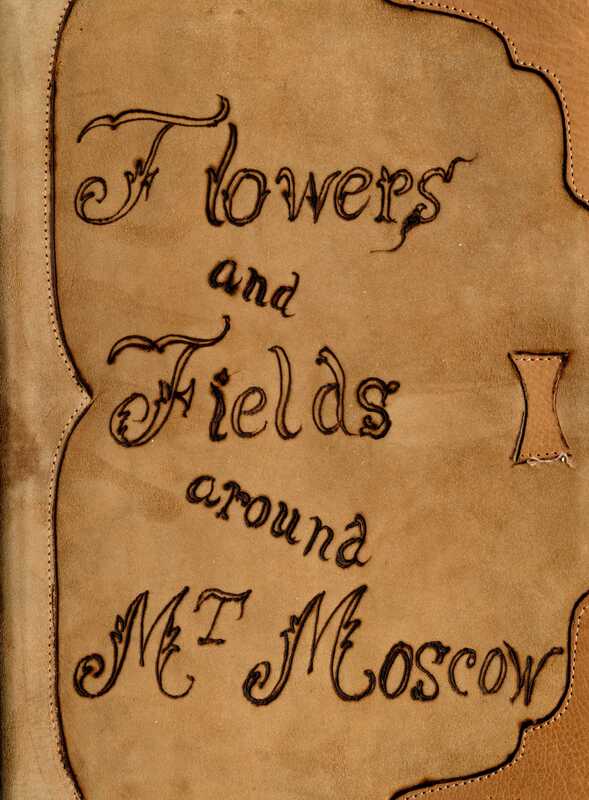 Flowers
and
Fields
around
MT Moscow